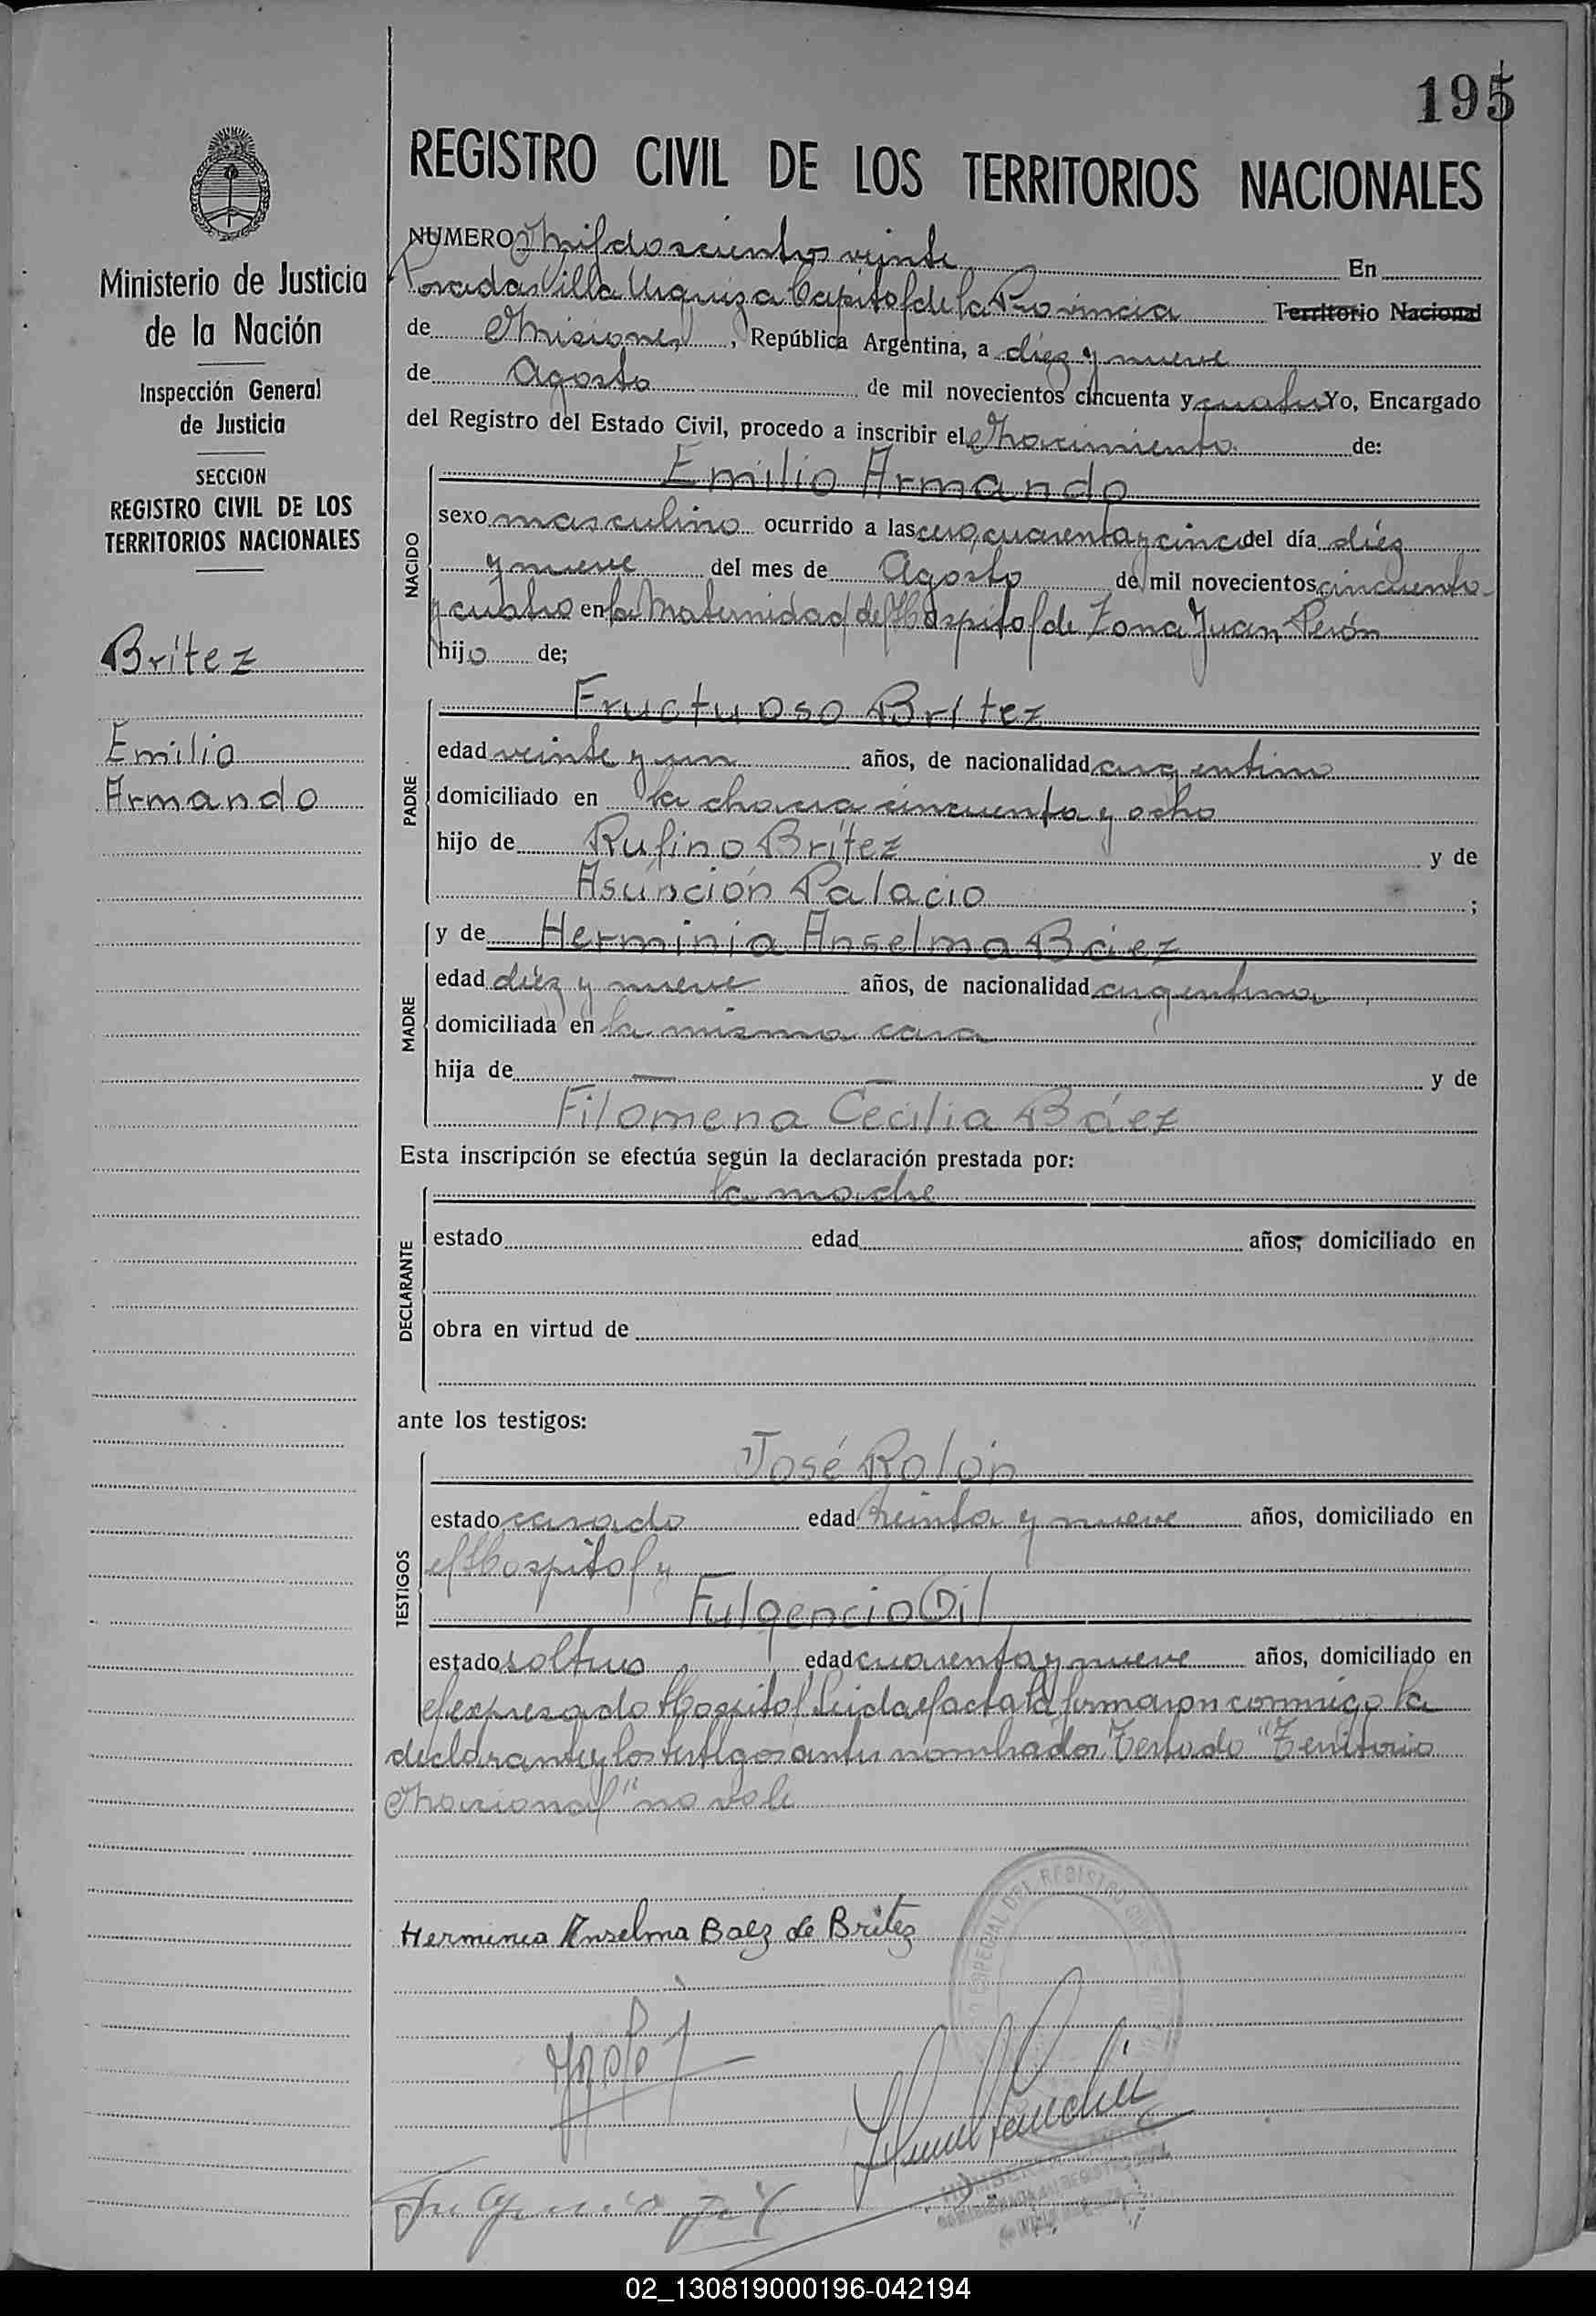 195
REGISTRO CIVIL DE LOS TERRITORIOS NACIONALES
Ministerio de Justicia
de la Nación
Inspección General
de Justicia
SECCION
REGISTRO CIVIL DE LOS
TERRITORIOS NACIONALES
Brítez
Emilio
Armando
NUMERO Mil doscientos veinte En
Posadas Villa Urquiza Capital de la Provincia Territorio Nacional
de Misiones, República Argentina, a diez y nueve
de Agosto de mil novecientos cincuenta y cuatro Yo, Encargado
del Registro del Estado Civil, procedo a inscribir el Nacimiento de:
NACIDO
Emilio Armando
sexo masculino ocurrido a las cero, cuarenta y cinco del día diez
y nueve del mes de Agosto de mil novecientos cincuenta
y cuatro en la Maternidad del Hospital de Zona Juan Perón
hijo de;
PADRE
Fructuoso Brítez
edad veinte y un años, de nacionalidad argentino
domiciliado en la chacra cincuenta y ocho
hijo de Rufino Brítez y de
Asunción Palacio ;
MADRE
y de Herminia Anselma Báez
edad diez y nueve años, de nacionalidad argentina
domiciliada en la misma casa
hija de — — y de
Filomena Cecilia Báez
Esta inscripción se efectúa según la declaración prestada por:
DECLARANTE
la madre
estado edad años; domiciliado en
obra en virtud de
ante los testigos:
TESTIGOS
José Rolón
estado casado edad treinta y nueve años, domiciliado en
el Hospital y
Fulgencio Gil
estado soltero edad cuarenta y nueve años, domiciliado en
el expresado Hospital Leida el acta la firmaron conmigo la
declarante y los testigos antes nombrados. Testado "Territorio
Nacional" no vale
Herminia Anselma Baez de Britez
Fulgencio Gil
02_130819000196-042194